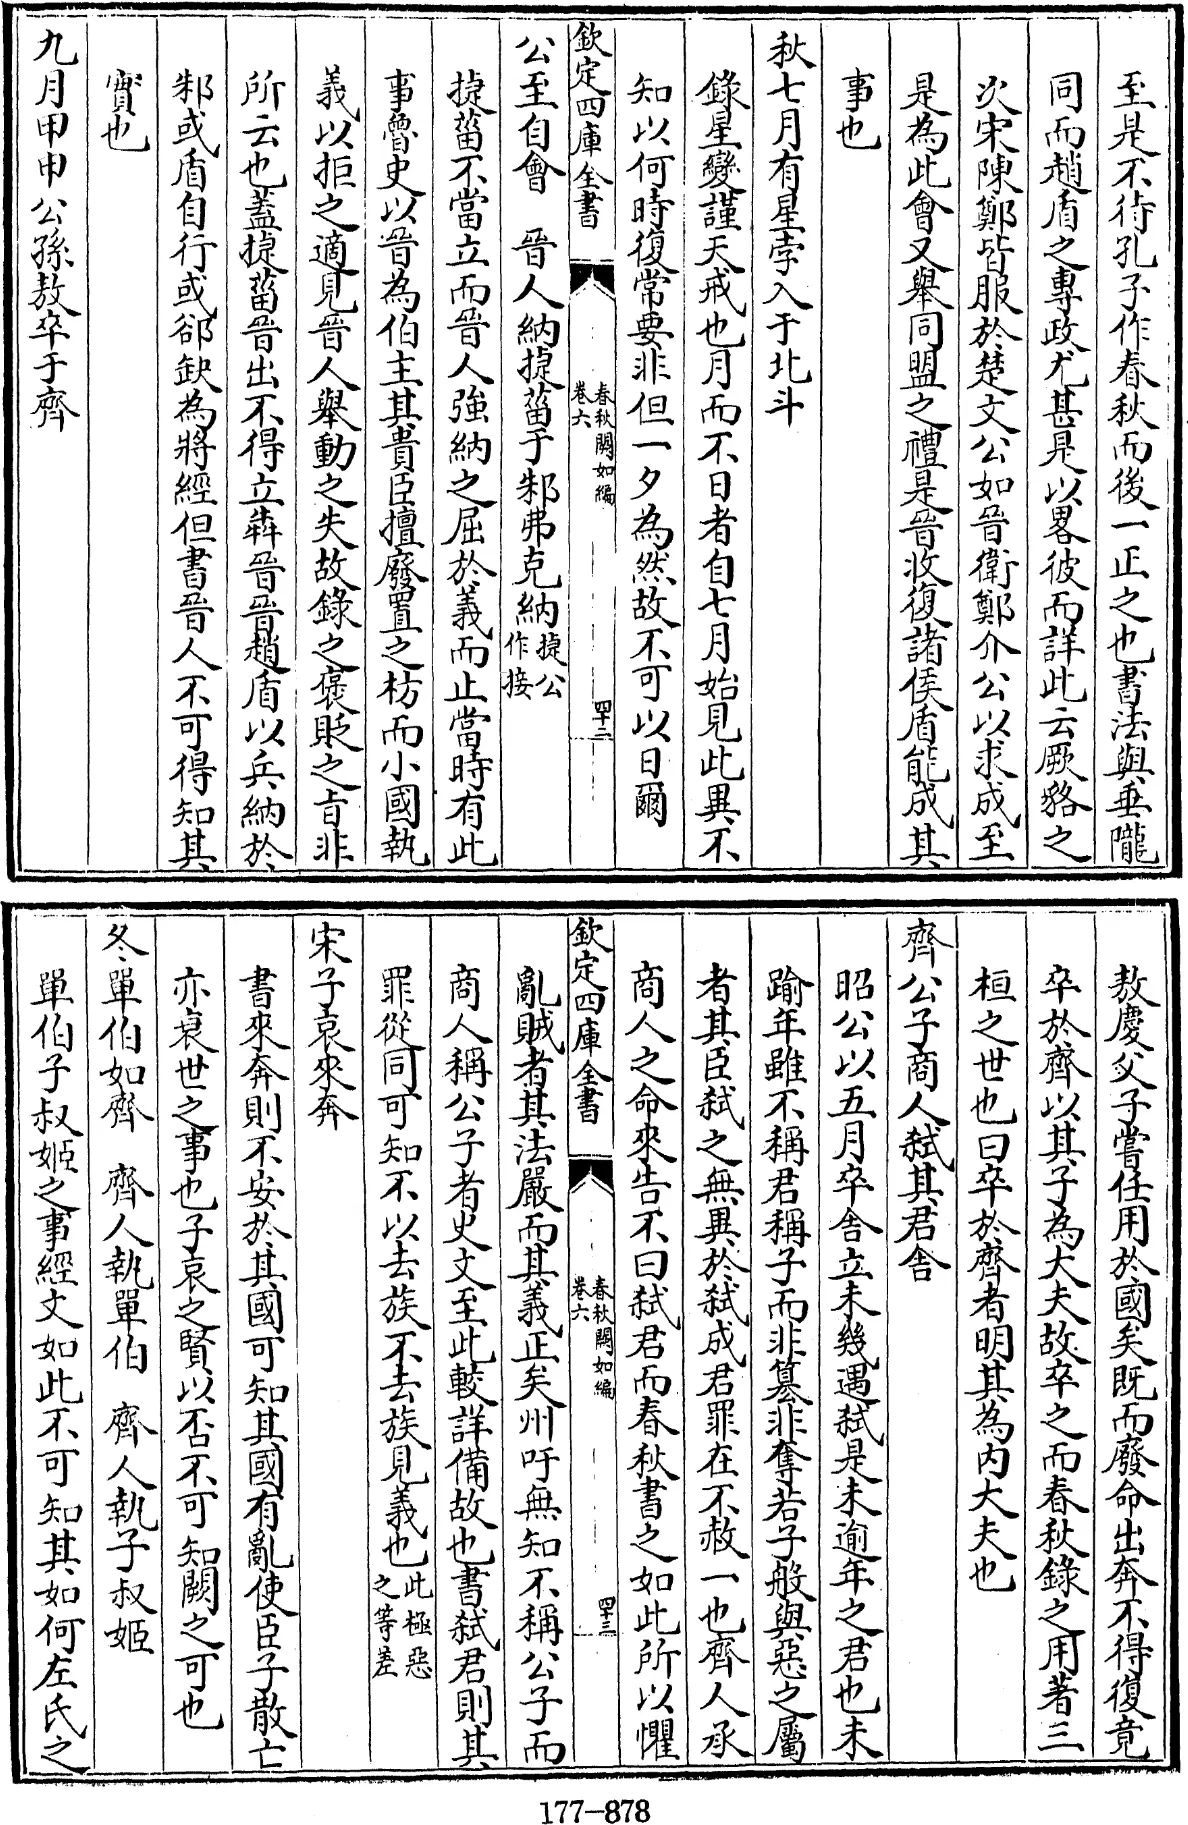 至是不待孔子作春秋而後一正之也書法與垂隴
同而趙盾之專政尤甚是以畧彼而詳此云厥貉之
次宋陳鄭皆服於楚文公如晉衛鄭介公以求成至
是為此會又舉同盟之禮是晉收復諸侯盾能成其
事也
秋七月有星孛入于北斗
錄星變謹天戒也月而不日者自七月始見此異不
知以何時復常要非但一夕為然故不可以日爾
欽定四庫全書
春秋闕如編
卷六
四十二
公至自會 晉人納捷菑于邾弗克納
捷公
作接
捷菑不當立而晉人強納之屈於義而止當時有此
事魯史以晉為伯主其貴臣擅廢置之枋而小國執
義以拒之適見晉人舉動之失故錄之褒貶之旨非
所云也蓋捷菑晉出不得立犇晉晉趙盾以兵納於
邾或盾自行或郤缺為將經但書晉人不可得知其
實也
九月甲申公孫敖卒于齊
敖慶父子嘗任用於國矣既而廢命出奔不得復竟
卒於齊以其子為大夫故卒之而春秋錄之用著三
桓之世也曰卒於齊者明其為內大夫也
齊公子商人弒其君舍
昭公以五月卒舍立未幾遇弒是未逾年之君也未
踰年雖不稱君稱子而非篡非奪若子般與惡之屬
者其臣弒之無異於弒成君罪在不赦一也齊人承
商人之命來告不曰弒君而春秋書之如此所以懼
欽定四庫全書
春秋闕如編
卷六
四十三
亂賊者其法嚴而其義正矣州吁無知不稱公子而
商人稱公子者史文至此較詳備故也書弒君則其
罪從同可知不以去族不去族見義也
此極惡
之等差
宋子哀來奔
書來奔則不安於其國可知其國有亂使臣子散亡
亦衰世之事也子哀之賢以否不可知闕之可也
冬單伯如齊 齊人執單伯 齊人執子叔姬
單伯子叔姬之事經文如此不可知其如何左氏之
177-878